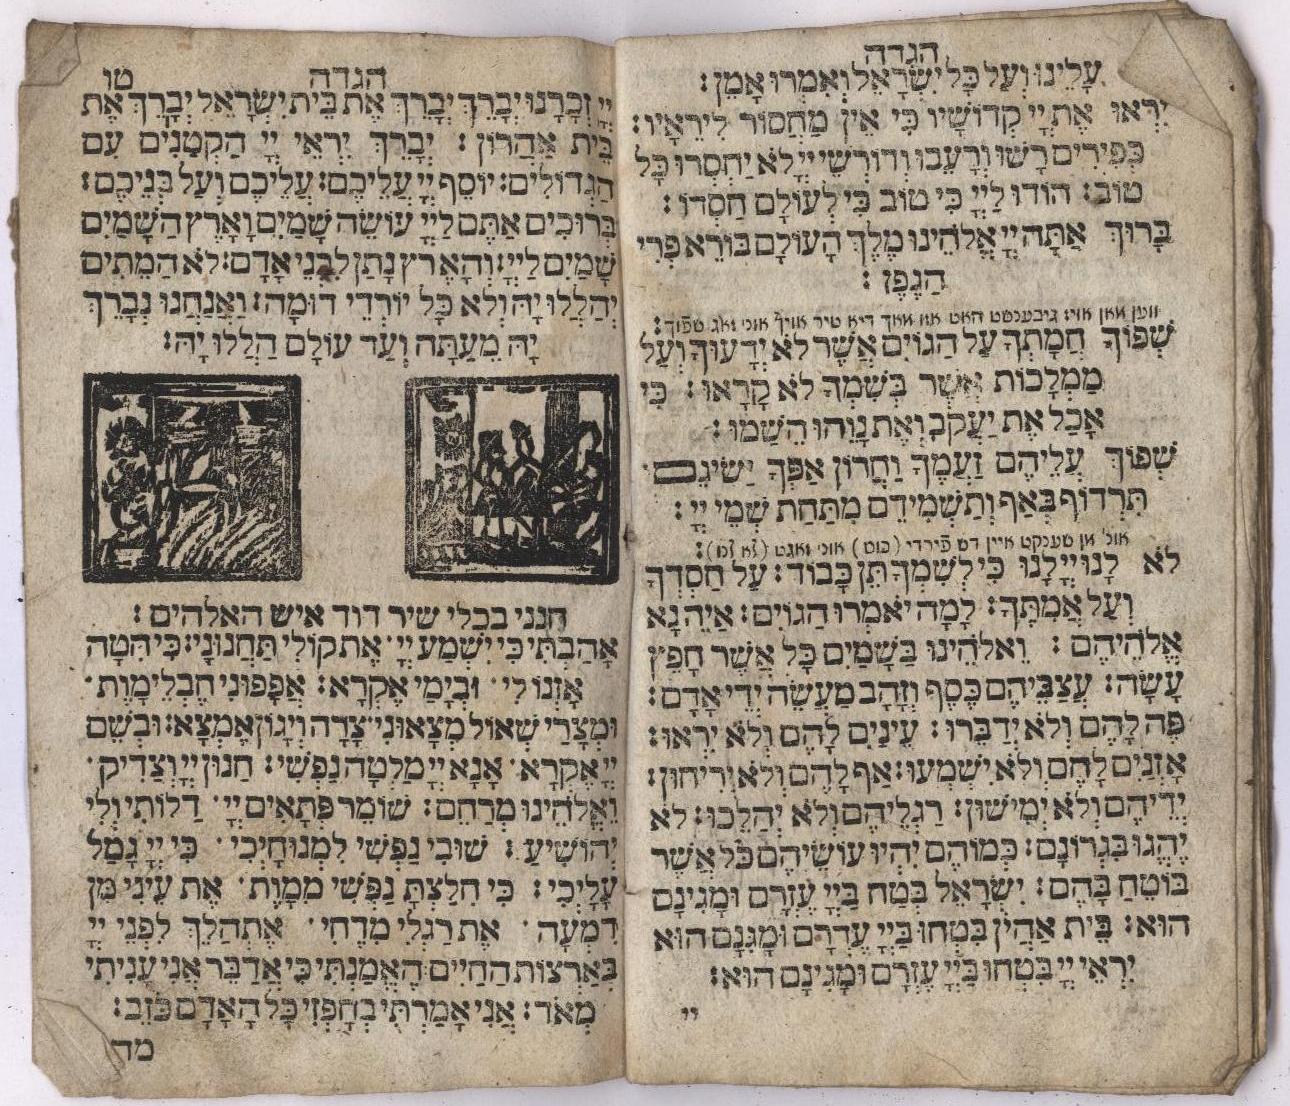 הגדה
עָלֵינוּ וְעַל כָּל יִשְׂרָאֵל וְאִמְרוּ אָמֵן:
יְראוּ אֶת יְיָ קְדוֹשָׁיו כִּי אֵין מַחְסוֹר לִירֵאָיו:
כְּפִירִים רָשׁוּ וְרָעֵבוּ וְדוֹרְשֵׁי יְיָ לֹא יַחְסְרוּ כָּל
טוֹב: הוֹדוּ לַייָ כִּי טוֹב כִּי לְעוֹלָם חַסְדּוֹ:
בָּרוּךְ אַתָּה יְיָ אֱלֹהֵינוּ מֶלֶךְ הָעוֹלָם בּוֹרֵא פְּרִי
הַגֶפֶן:
ווען מאן אויז גיבענטשט האט אזו מאך דיא טיר אויף אונ׳ זאג שפוך:
שְׁפוֹךְ חֲמָתְךָ עַל הַגוֹיִם אֲשֶׁר לֹא יְדָעוּךָ וְעַל
מַמְלָכוֹת אֲשֶׁר בְּשִׁמְךָ לֹא קָרָאוּ: כִּי
אָכַל אֶת יַעֲקֹב וְאֶת נָוֵהוּ הֵשַׁמוּ:
שְׁפוֹךְ עֲלֵיהֶם זַעְמֶךָ וַחֲרוֹן אַפְּךָ יַשִׂיגֵם
תִּרְדוֹף בְּאַף וְתַשְׁמִידֵם מִתַּחַת שְׁמֵי יְיָ:
אול אן שענקט איין דש פירדי (כוס) אונ׳ זאגט (לא לנו):
לֹא לָנוּ יְיָ לָנוּ כִּי לְשִׁמְךָ תֵּן כָּבוֹד: עַל חַסְדְךָ
וְעַל אֲמִתֶּךָ: לָמָה יֹאמְרוּ הַגוֹיִם: אַיֵה נָא
אֱלֹהֵיהֶם: וֵאלֹהֵינוּ בַשָׁמַיִם כָּל אֲשֶׁר חָפֵץ
עָשָׂה: עֲצַבֵּיהֶם כֶּסֶף וְזָהָב מַעֲשֵׂה יְדֵי אָדָם:
פֶּה לָהֶם וְלֹא יְדַבֵּרוּ: עֵינַיִם לָהֶם וְלֹא יִרְאוּ:
אָזְנַיִם לָהֶם וְלֹא יִשְׁמָעוּ: אַף לָהֶם וְלֹא יְרִיחוּן:
יְדֵיהֶם וְלֹא יְמִישׁוּן: רַגְלֵיהֶם וְלֹא יְהַלֵכוּ: לֹא
יֶהְגוּ בִּגְרוֹנָם: כְּמוֹהֶם יִהְיוּ עוֹשֵׂיהֶם כֹּל אֲשֶׁר
בּוֹטֵחַ בָּהֶם: יִשְׂרָאֵל בְּטַח בַּייָ עֶזְרָם וּמָגִינָם
הוּא: בֵּית אַהֲרֹן בִּטְחוּ בַּייָ עֶזְרָם וּמָגִנָם הוּא
יִרְאֵי יְיָ בִּטְחוּ בַּייָ עֶזְרָם וּמָגִינָם הוּא:
יי
הגדה טו
יְיָ זְכָרָנוּ יְבָרֵךְ יְבָרֵךְ אֶת בֵּית יִשְׂרָאֵל יְבָרֵךְ אֶת
בֵּית אַהֲרוֹן: יְבָרֵךְ יִרְאֵי יְיָ הַקְטַנִים עִם
הַגְדוֹלִים: יוֹסֵף יְיָ עֲלֵיכֶם: עֲלֵיכֶם וְעַל בְּנֵיכֶם:
בְּרוּכִים אַתֶּם לַייָ עוֹשֵׂה שָׁמַיִם וָאָרֶץ הַשָׁמַיִם
שָׁמַיִם לַייָ: וְהָאָרֶץ נָתַן לִבְנֵי אָדָם: לֹא הַמֵתִים
יְהַלְלוּ יָהּ וְלֹא כָּל יוֹרְדֵי דוּמָה: וַאֲנַחְנוּ נְבָרֵךְ
יָהּ מֵעַתָּה וְעַד עוֹלָם הַלְלוּ יָהּ:
חנני בכלי שיר דוד איש האלהים:
אָהַבְתִּי כִּי יִשְׁמַע יְיָ אֶת קוֹלִי תַּחֲנוּנָי: כִּי הִטָה
אָזְנוֹ לִי וּבְיָמַי אֶקְרָא: אֲפָפוּנִי חֶבְלֵי מָוֶת
וּמְצָרֵי שְׁאוֹל מְצָאוּנִי צָרָה וְיָגוֹן אֶמְצָא: וּבְשֵׁם
יְיָ אֶקְרָא אָנָא יְיָ מַלְטָה נַפְשִׁי: חַנוּן יְיָ וְצַדִיק
וֵאלֹהֵינוּ מְרַחֵם: שׁוֹמֵר פְּתָאִים יְיָ דַלוֹתִי וְלִי
יְהוֹשִׁיעַ: שׁוּבִי נַפְשִׁי לִמְנוּחָיְכִי כִּי יְיָ גָמַל
עָלָיְכִי: כִּי חִלַצְתָּ נַפְשִׁי מִמָוֶת אֶת עֵינִי מִן
דִמְעָה אֶת רַגְלִי מִדֶחִי אֶתְהַלֵךְ לִפְנֵי יְיָ
בְּאַרְצוֹת הַחַיִים הֶאֱמַנְתִּי כִּי אֲדַבֵּר אֲנִי עָנִיתִי
מְאֹד: אֲנִי אָמַרְתִּי בְחָפְזִי כָּל הָאָדָם כֹּזֵב:
מה